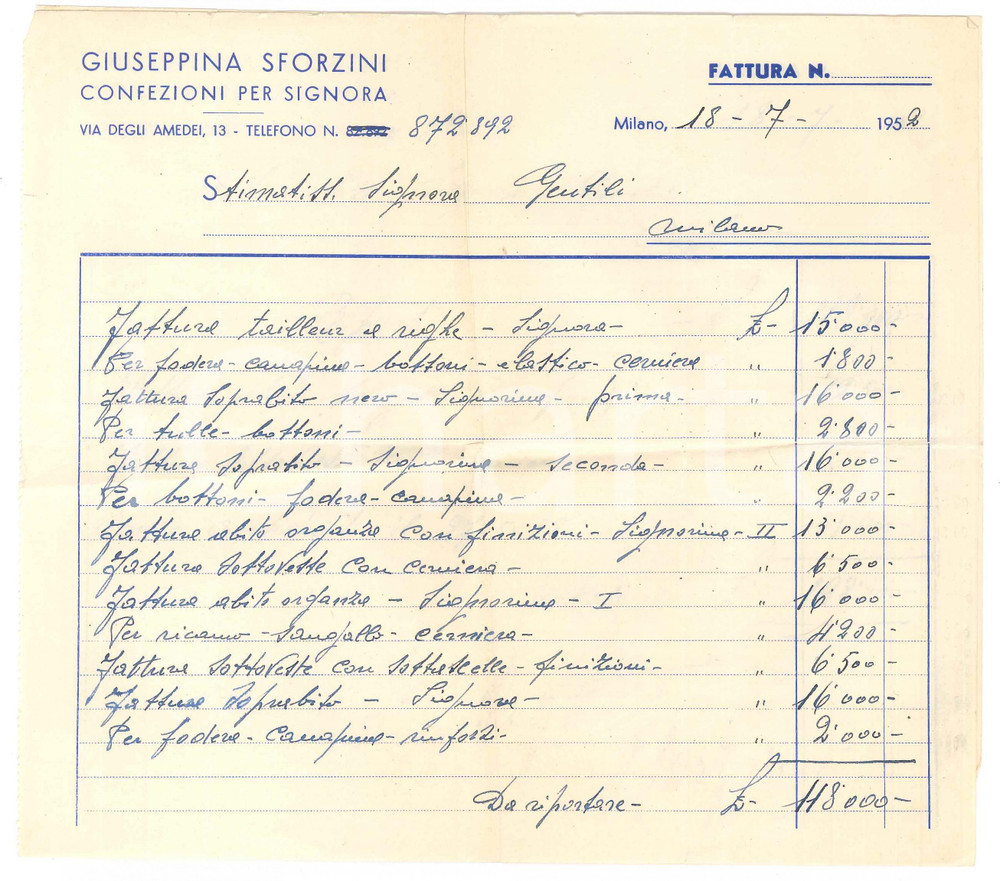 GIUSEPPINA SFORZINI
CONFEZIONI PER SIGNORA
VIA DEGLI AMEDEI, 13 - TELEFONO N. 872892
FATTURA N.
Milano, 18 - 7 - 1952
Stimatiss. Signora Gentili
Milano
Fattura tailleur a righe - Signora - £- 15'000-
Per fodera - canapina - bottoni - elastico - cerniera " 1'800-
Fattura Soprabito nero - Signorina - prima - " 16'000-
Per tulle - bottoni - " 2'800-
Fattura Soprabito - Signorina - Seconda - " 16'000-
Per bottoni - fodera - canapina - " 2'200-
Fattura abito organza con finizioni - Signorina - II 13'000-
Fattura Sottoveste con cerniera - " 6'500-
Fattura abito organza - Signorina - I " 16'000-
Per ricamo - Sangallo - cerniera - " 4'200-
Fattura Sottoveste con - finizioni - " 6'500-
Fattura Soprabito - Signora - " 16'000-
Per fodera - canapina - rinforzi - " 2'000-
Da riportare - £- 118'000-